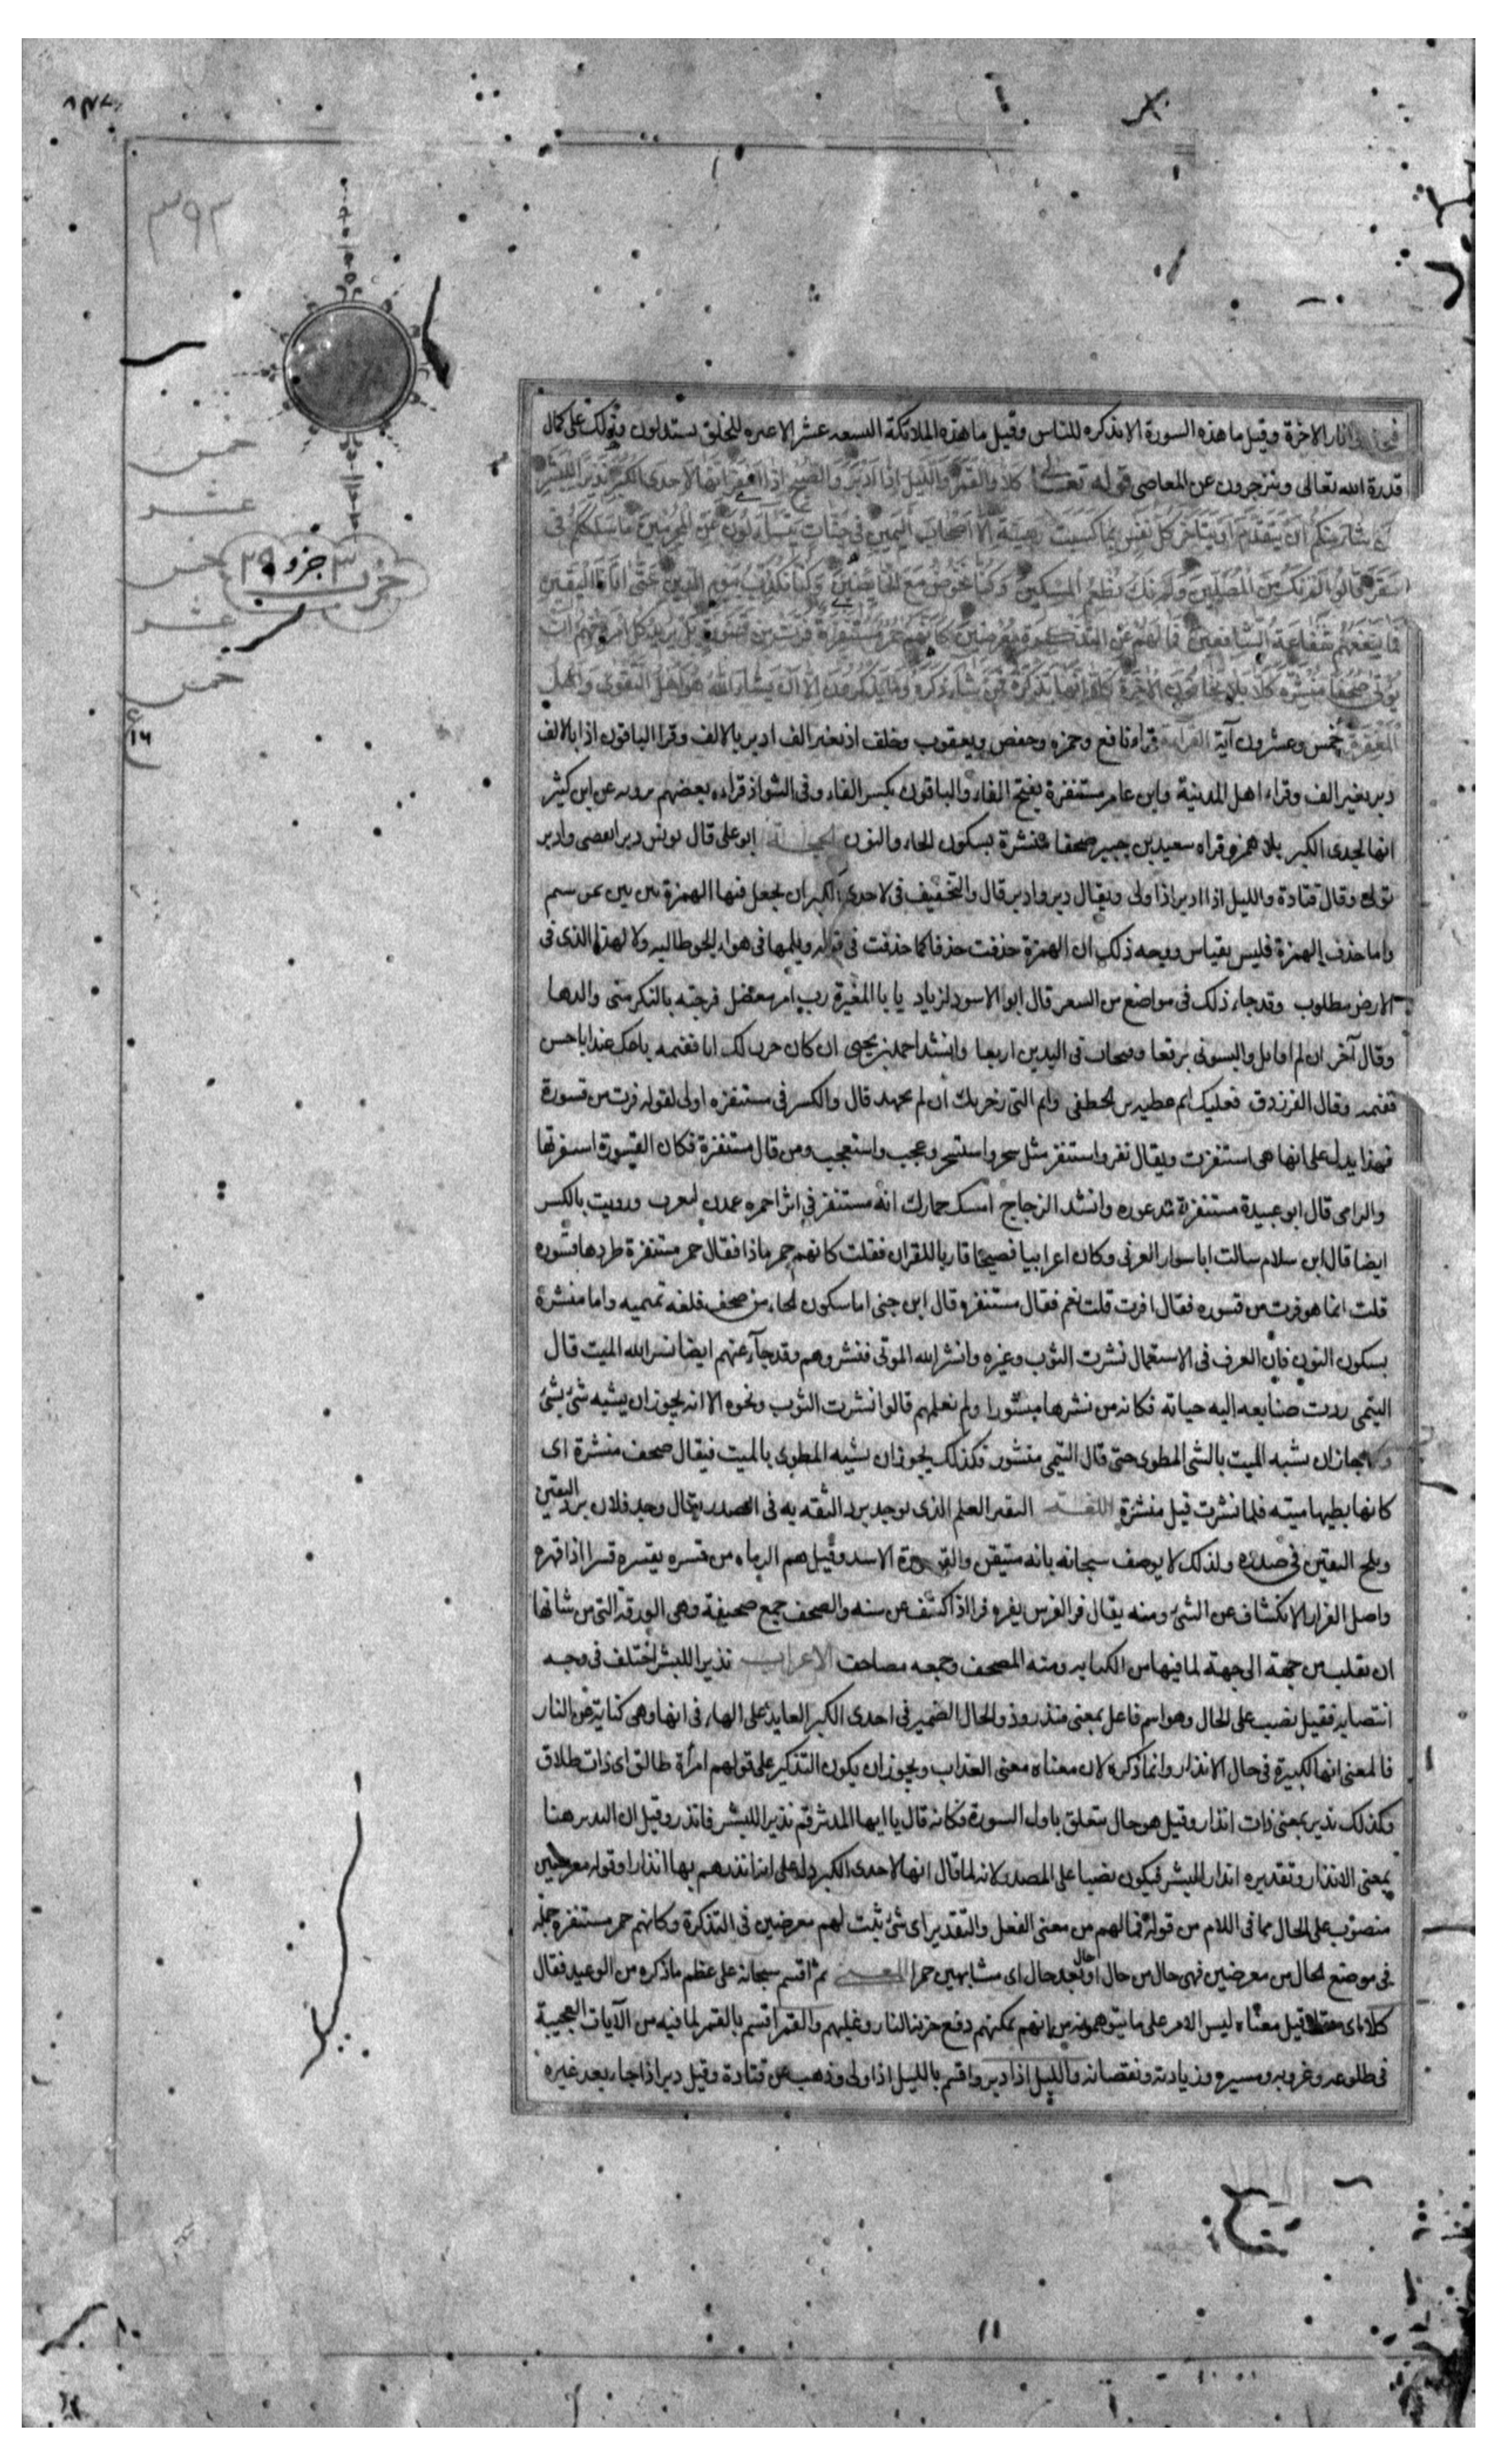 نار الاخرة وقيل ما هذه السورة الا تذكره للناس وقيل ما هذه الملائكة التسعه عشر الا عبره للخلق يستدلون بذلك على كمال
قدرة الله تعالى وينزجرون عن المعاصى قوله تعالى كلا والقمر والليل اذا ادبر والصبح اذا اسفر انها لاحدى الكبر نذيرا للبشر
لمن شاء منكم ان يتقدم او يتاخر كل نفس بما كسبت رهينة الا اصحاب اليمين فى جنات يتساءلون عن المجرمين ما سلككم فى
سقر قالوا لم نك من المصلين ولم نك نطعم المسكين وكنا نخوض مع الخائضين وكنا نكذب بيوم الدين حتى اتانا اليقين
فما تنفعهم شفاعة الشافعين فما لهم عن التذكرة معرضين كانهم حمر مستنفرة فرت من قسورة بل يريد كل امرئ منهم ان
يؤتى صحفا منشرة كلا بل لا يخافون الاخرة كلا انها تذكرة فمن شاء ذكره وما يذكرون الا ان يشاء الله هو اهل التقوى واهل
المغفرة خمس وعشرون آية القراءة قراء نافع وحمزه وحفص ويعقوب وخلف اذ بغير الف ادبر بالالف وقرا الباقون اذا بالالف
دبر بغير الف وقراء اهل المدينة وابن عامر مستنفرة بفتح الفاء والباقون بكسر الفاء وفى الشواذ قراءه بعضهم يرويه عن ابن كثير
انها لحدى الكبر بلا همز وقراه سعيد بن جبير صحفا منشرة بسكون الحاء والنون الحجة ابو على قال يونس دبر انقضى وادبر
تولى وقال قتادة والليل اذا ادبر اذا ولى ويقال دبر وادبر قال والتخفيف فى لاحدى الكبر ان يجعل فيها الهمزة بين بين
واما حذف الهمزة فليس بقياس ووجه ذلك ان الهمزة حذفت حذفا كما حذفت فى قوله ويلمها فى هواء الجو طالبه ولا لهذا الذى فى
الارض مطلوب وقد جاء ذلك فى مواضع من الشعر قال ابو الاسود لزياد يا با المغيرة رب امر معضل فرجته بالنكر منى والدها
وقال آخر ان لم اقاتل والبسونى برقعا وفتحات فى اليدين اربعا وانشد احمد بن يحيى ان كان حزن لك
وقال الفرزدق فعليك اثم عطيه بن الخطفى واثم التى زخرتك ان لم تجهد قال والكسر فى مستنفره اولى لقوله فرت من قسورة
فهذا يدل على انها هى استنفرت ويقال نفر واستنفر مثل سخر واستسخر وعجب واستعجب ومن قال مستنفرة فكان القسورة استنفرتها
والرامى قال ابو عبيدة مستنفرة مذعوره وانشد الزجاج امسك حمارك انه مستنفر فى اثر احمره عمدن لغرب ورويت بالكسر
ايضا قال ابن سلام سالت ابا سوار الغنوى وكان اعرابيا فصيحا قاريا للقران فقلت كانهم حمر ماذا فقال حمر مستنفرة طردها قسوره
قلت انما هو فرت من قسوره فقال افرت قلت نعم فقال مستنفره قال ابن جنى اما سكون الحاء من صحف فلغه تميميه واما منشرة
بسكون النون فان العرف فى الاستعمال نشرت الثوب وغيره وانشر الله الموتى فنشروهم وقد جآء عنهم ايضا نشر الله الميت قال
التيمى ردت صنايعه اليه حياته فكانه من نشرها منشورا ولم نعلمهم قالوا انشرت الثوب ونحوه الا انه يجوز ان يشبه شئ بشئ
جاز ان يشبه الميت بالشى المطوى حتى قال التيمى منشور فكذلك يجوز ان يشبه المطوى بالميت فيقال صحف منشرة اى
كانها بطيها ميته فلما نشرت قيل منشرة اللغة اليقين العلم الذى يوجد برد الثقه به فى الصدر يقال وجد فلان برد اليقين
وثلج اليقين فى صدره ولذلك لا يوصف سبحانه بانه متيقن والقسورة الاسد وقيل هم الرماه من قسره يقسره قسرا اذا قهره
واصل الفرار الانكشاف عن الشئ ومنه يقال فر الفرس يفره فرا اذا كشف عن سنه والصحف جمع صحيفة وهى الورقة التى من شانها
ان تقلب من جهة الى جهة لما فيها من الكتابه ومنه المصحف وجمعه مصاحف الاعراب نذيرا للبشر اختلف فى وجه
انتصابه فقيل نصب على الحال وهو اسم فاعل بمعنى منذر وذو الحال الضمير فى احدى الكبر العايد على الهاء فى انها وهى كناية عن النار
فالمعنى انها لكبيرة فى حال الانذار وانما ذكره لان معناه معنى العذاب ويجوز ان يكون التذكير على قولهم امرأة طالق اى ذات طلاق
فكذلك نذير بمعنى ذات انذار وقيل هو حال متعلق باول السورة فكانه قال يا ايها المدثر قم نذيرا للبشر فانذر وقيل ان النذير هنا
بمعنى الانذار وتقديره انذارا للبشر فيكون نصبا على المصدر لانه لما قال انها لاحدى الكبر دل على انه انذرهم بها انذارا وقوله معرضين
منصوب على الحال مما فى اللام من قوله فما لهم من معنى الفعل والتقدير اى شئ ثبت لهم معرضين فى التذكرة وكانهم حمر مستنفره جمله
فى موضع الحال من معرضين فهى حال من حال او حال بعد حال اى مشابهين حمرا المعنى ثم اقسم سبحانه على عظم ما ذكره من الوعيد فقال
كلا اى حقا وقيل معناه ليس الامر على ما يتوهمونه من انهم يمكنهم دفع خزنة النار وغلبهم والقمر اقسم بالقمر لما فيه من الآيات العجيبة
فى طلوعه وغروبه ومسيره وزيادته ونقصانه والليل اذا دبر واقسم بالليل اذا ولى وذهب عن قتادة وقيل دبر اذا جاء بعد غيره
٣٩٣
خمس
عشر
خمس
عشر
خمس
حزب ٣ جزو ٢٩
ع
١٦